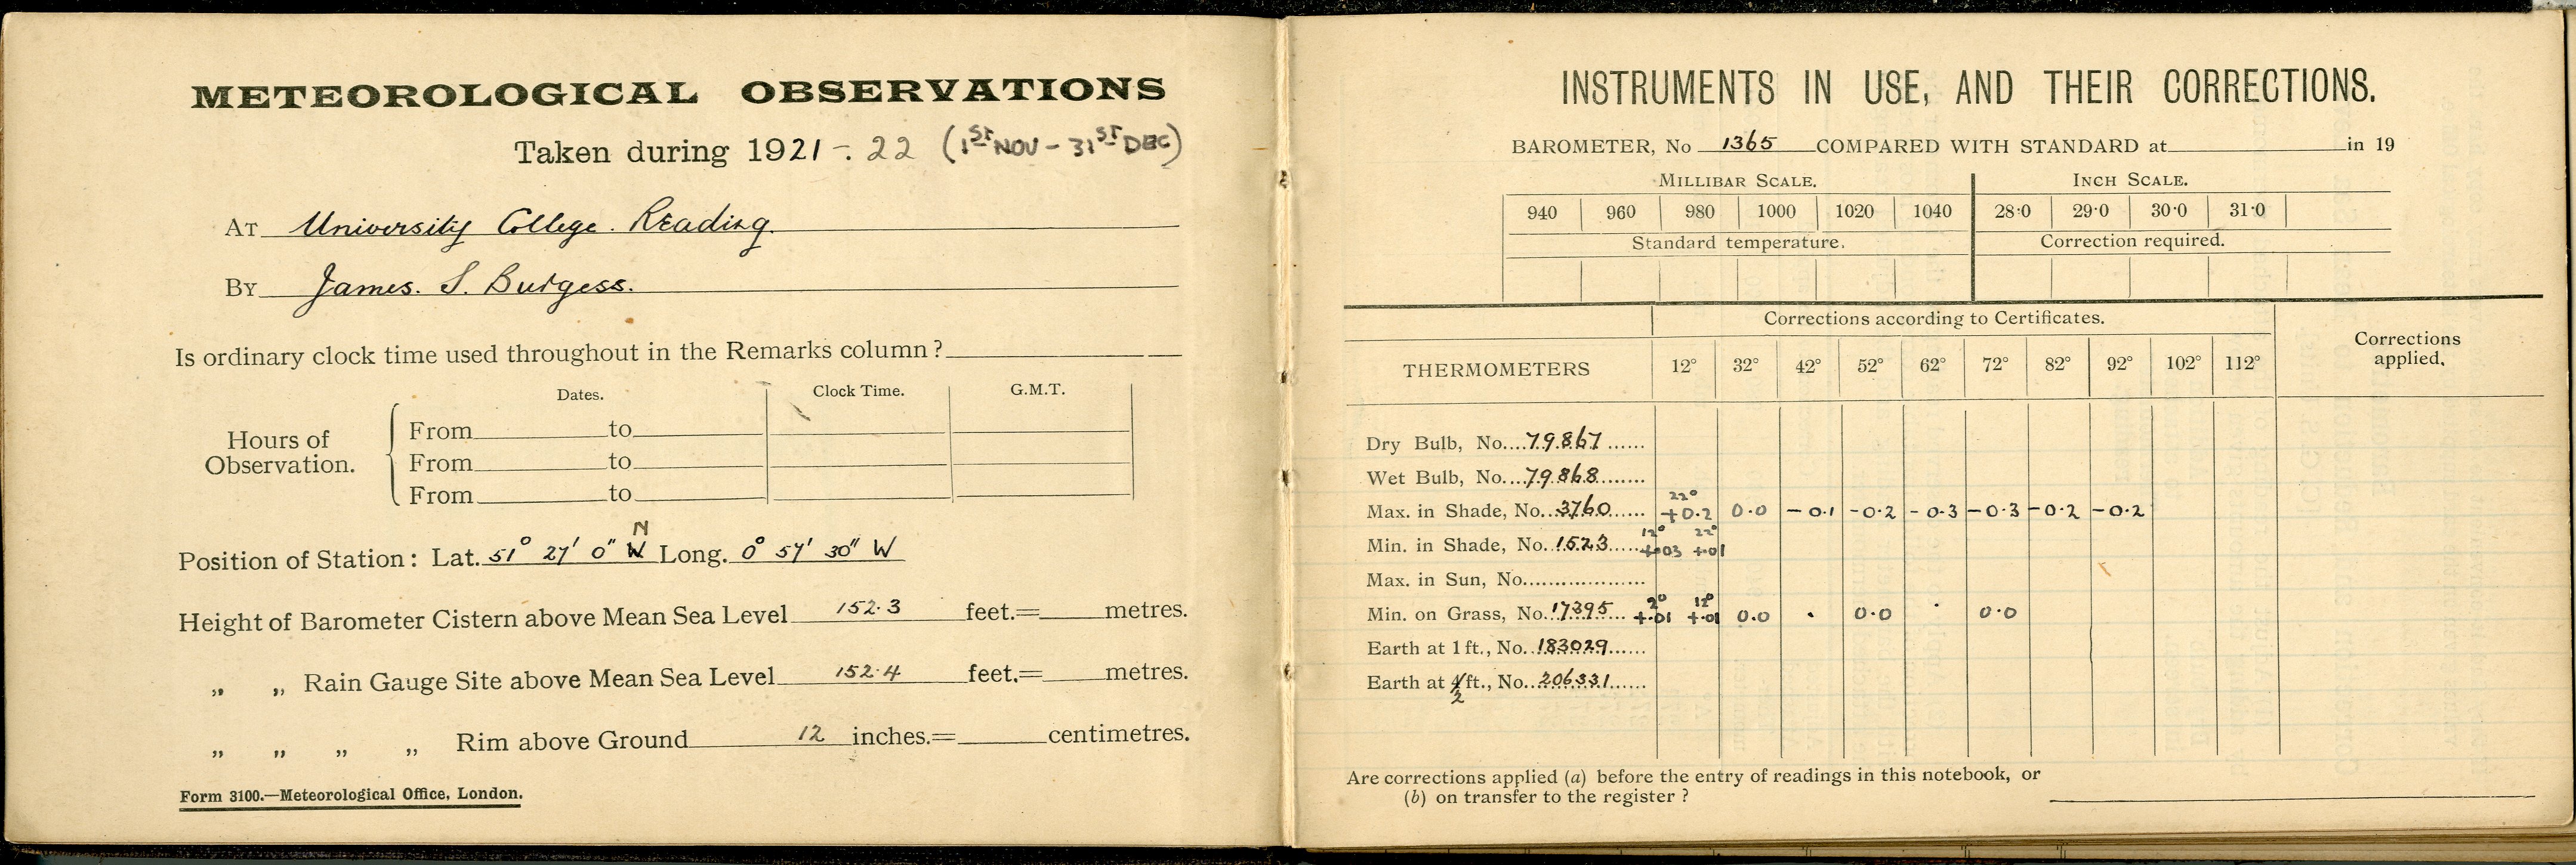 METEOROLOGICAL OBSERVATIONS
Taken during 1921 - 22 (1ST NOV - 31ST DEC)
AT University College. Reading.
BY James. S. Burgess.
Is ordinary clock time used throughout in the Remarks column?
Dates. Clock Time. G.M.T.
Hours of Observation.
From to
From to
From to
N
Position of Station: Lat. 51° 27' 0" W Long. 0° 57' 30" W
Height of Barometer Cistern above Mean Sea Level 152.3 feet.= metres.
„ „ Rain Gauge Site above Mean Sea Level 152.4 feet.= metres.
„ „ „ „ Rim above Ground 12 inches.= centimetres.
Form 3100.—Meteorological Office, London.
INSTRUMENTS IN USE, AND THEIR CORRECTIONS.
BAROMETER, No 1365 COMPARED WITH STANDARD at in 19
MILLIBAR SCALE. INCH SCALE.
940 960 980 1000 1020 1040 28·0 29·0 30·0 31·0
Standard temperature. Correction required.
Corrections according to Certificates.
Corrections applied.
THERMOMETERS 12° 32° 42° 52° 62° 72° 82° 92° 102° 112°
Dry Bulb, No. 79867
Wet Bulb, No. 79868
22°
Max. in Shade, No. 3760 +0.2 0.0 -0.1 -0.2 -0.3 -0.3 -0.2 -0.2
12° 22°
Min. in Shade, No. 1523 +.03 +.01
Max. in Sun, No.
2° 12°
Min. on Grass, No. 17395 +.01 +.01 0.0 . 0.0 . 0.0
Earth at 1 ft., No. 183029
Earth at 4 ft., No. 206331
2
Are corrections applied (a) before the entry of readings in this notebook, or
(b) on transfer to the register ?